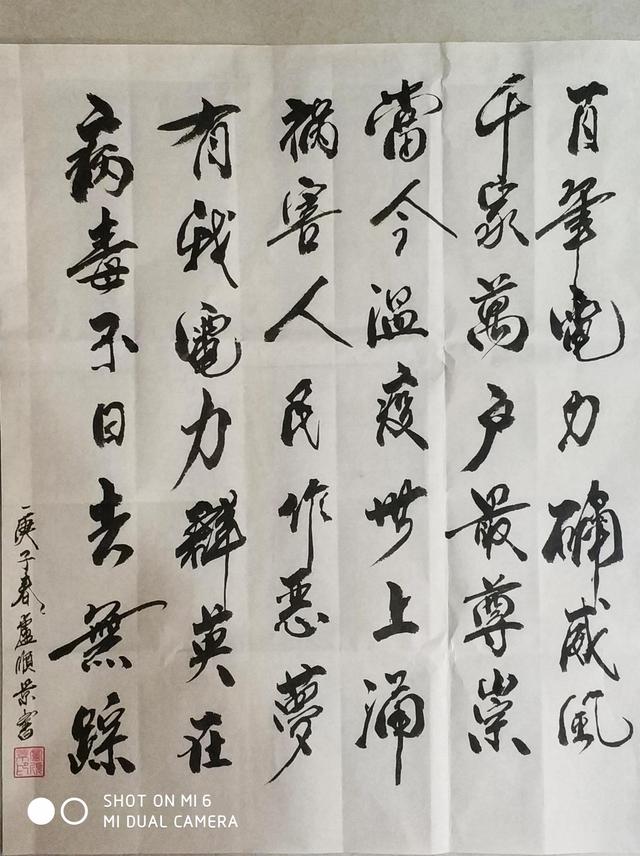 百年電力確威風
千家萬戶最尊崇
當今溫疫世上涌
禍害人民作惡夢
有我電力群英在
病毒不日去無踪
庚子春盧順景書
SHOT ON MI 6
MI DUAL CAMERA